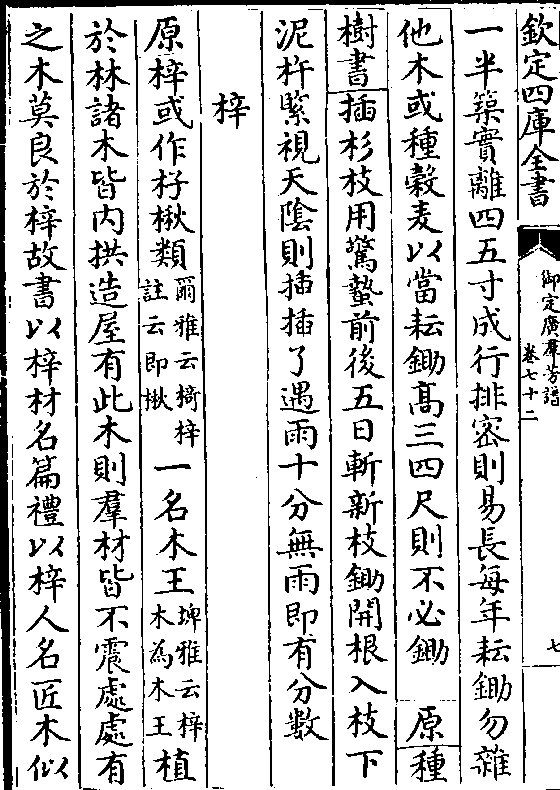 欽定四庫全書
御定廣羣芳譜
卷七十二
七
一半築實離四五寸成行排密則易長每年耘鋤勿雜
他木或種穀麦以當耘鋤髙三四尺則不必鋤 原種
樹書插杉枝用驚蟄前後五日斬新枝鋤開根入枝下
泥杵緊視天陰則插插了遇雨十分無雨即有分數
梓
原梓或作杍楸類爾雅云椅梓註云即楸一名木王埤雅云梓木為木王植
於林諸木皆内拱造屋有此木則羣材皆不震處處有
之木莫良於梓故書以梓材名篇禮以梓人名匠木似